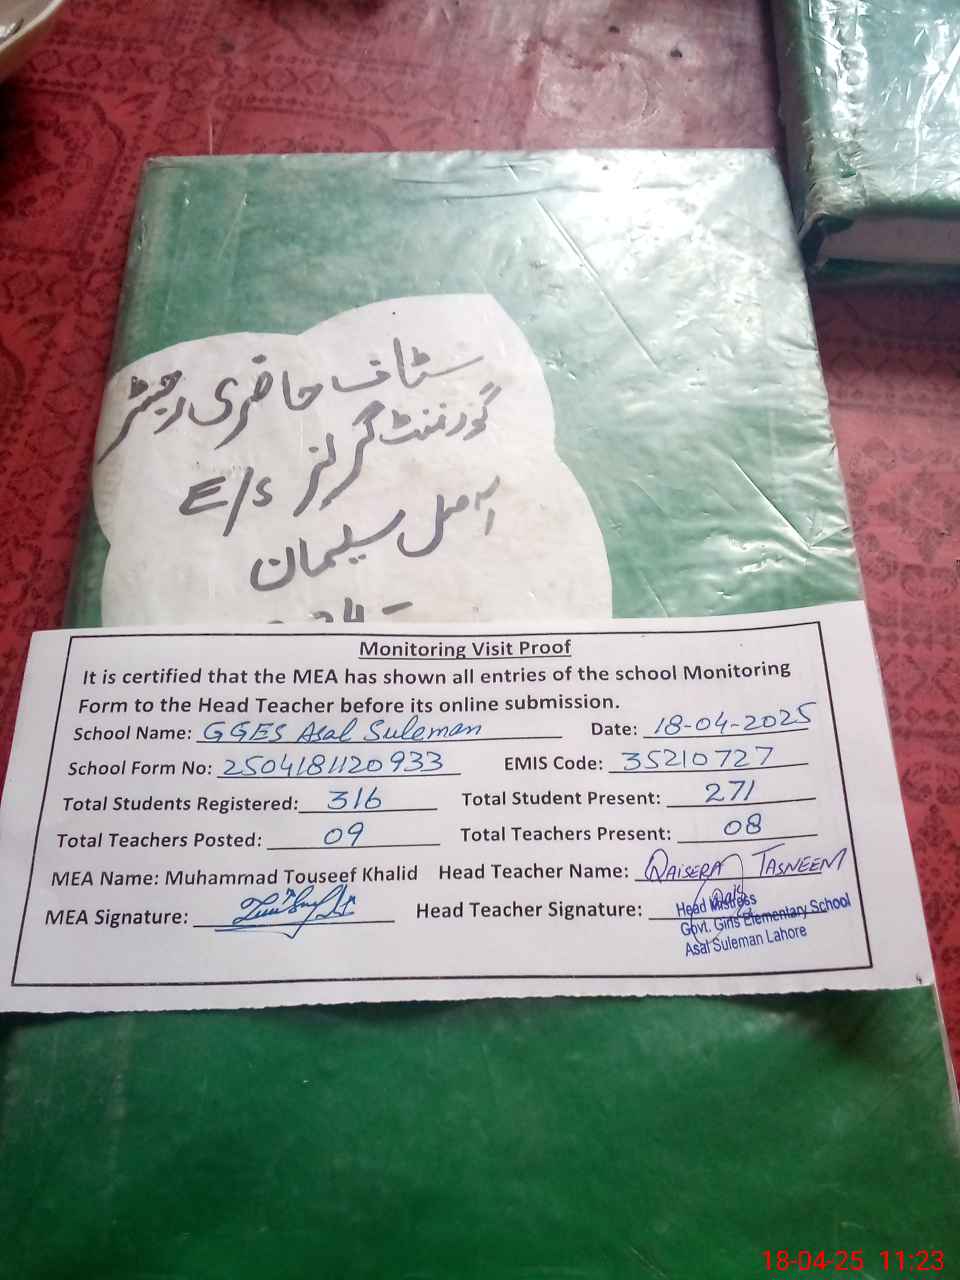 سٹاف حاضری رجسٹر
گورنمنٹ گرلز E/S
اصل سلیمان
Monitoring Visit Proof
It is certified that the MEA has shown all entries of the school Monitoring
Form to the Head Teacher before its online submission.
School Name: GGES Asal Suleman Date: 18-04-2025
School Form No: 2504181120933 EMIS Code: 35210727
Total Students Registered: 316 Total Student Present: 271
Total Teachers Posted: 09 Total Teachers Present: 08
MEA Name: Muhammad Touseef Khalid Head Teacher Name: QAISERA TASNEEM
MEA Signature: Head Teacher Signature:
Head Mistress
Govt. Girls Elementary School
Asal Suleman Lahore
18-04-25 11:23